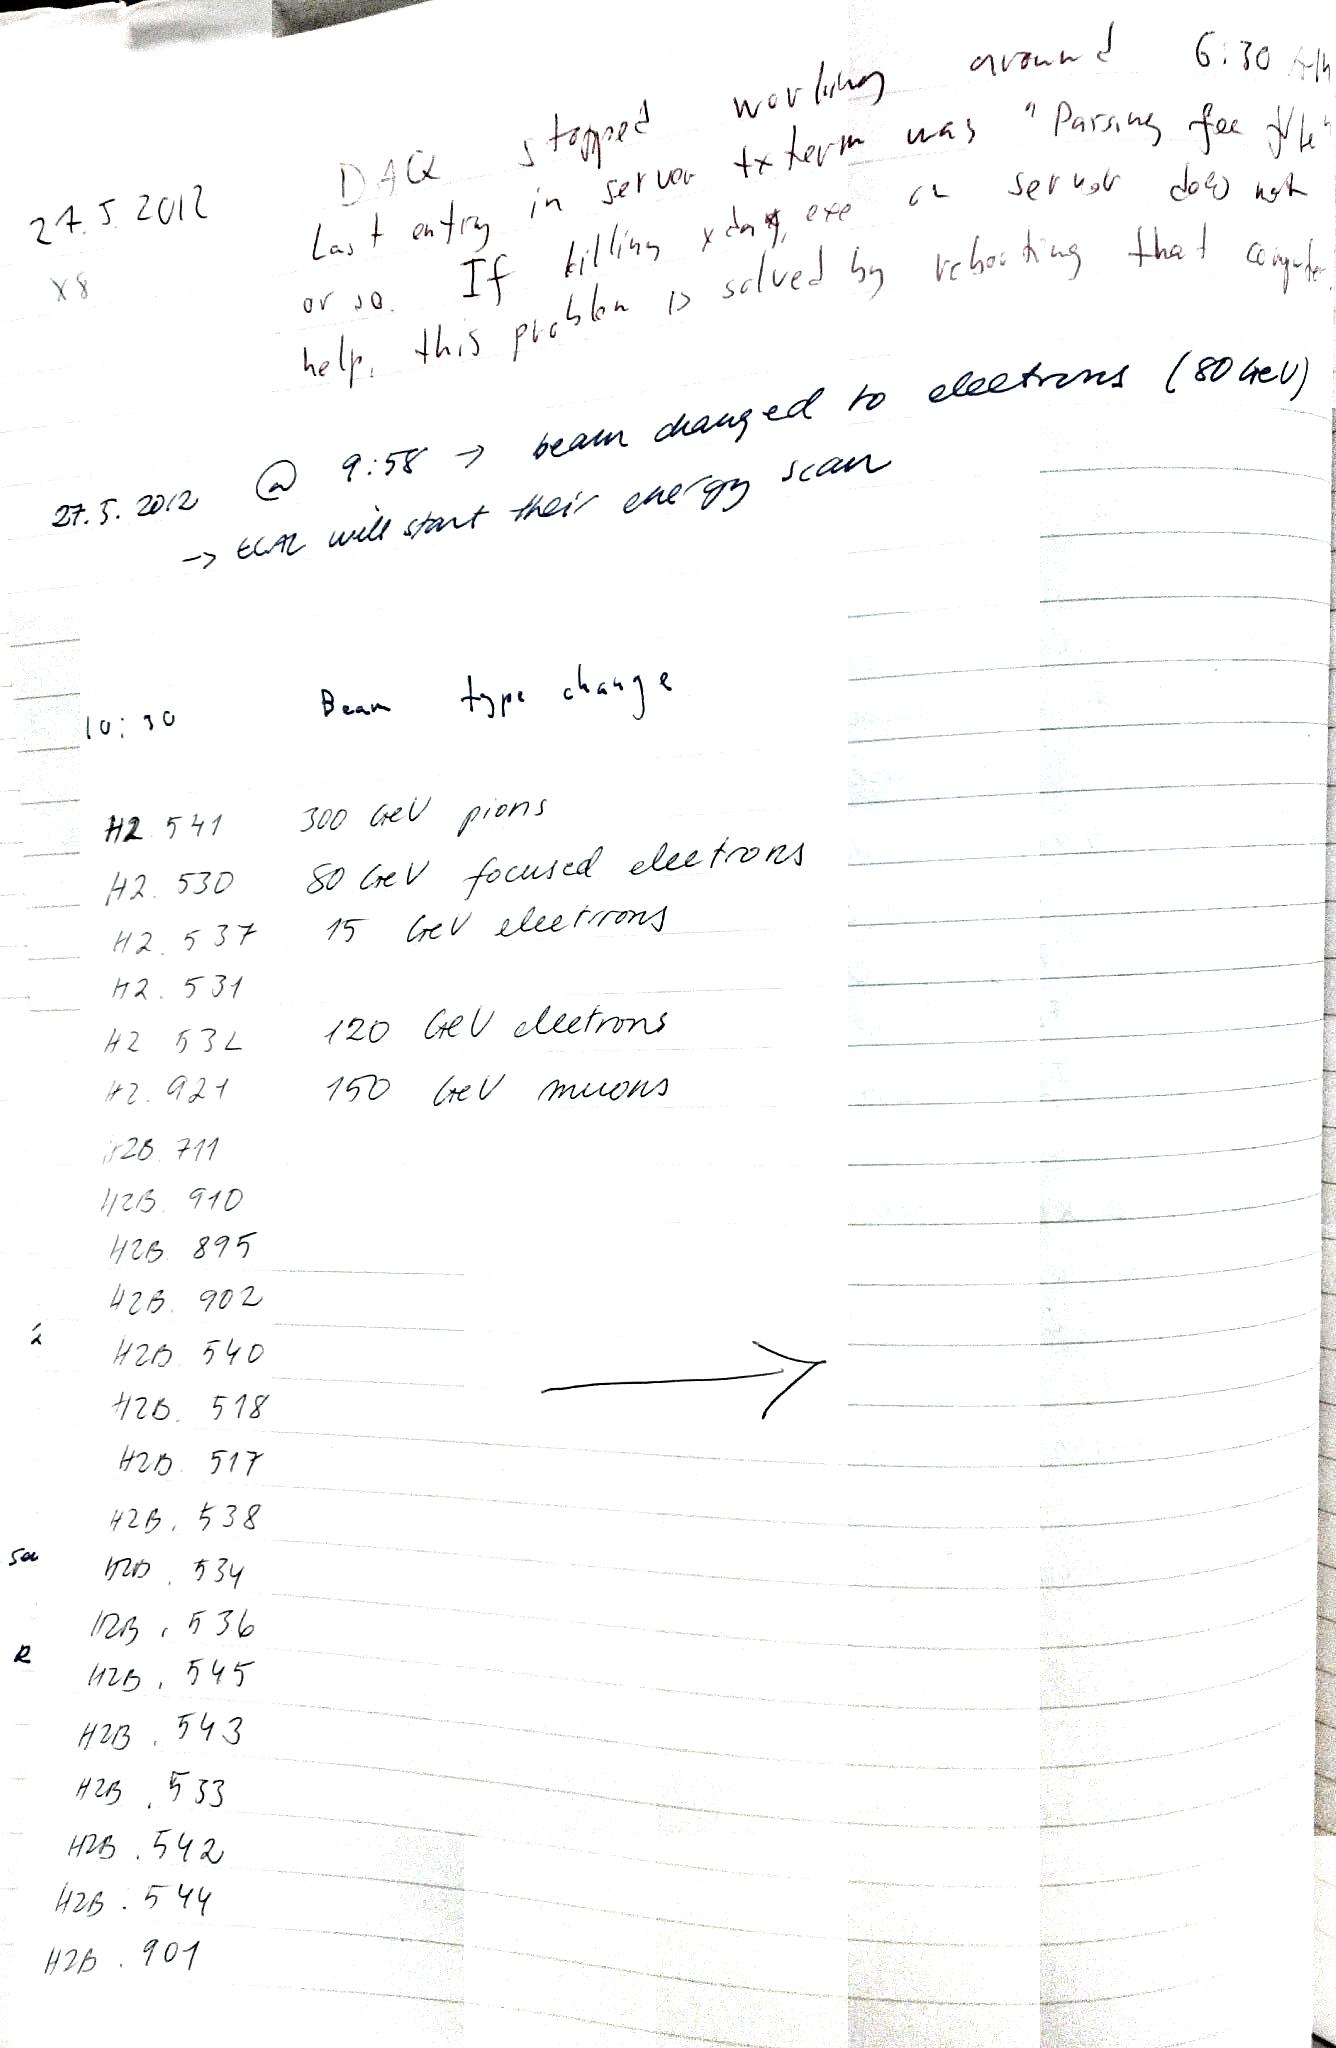 27.5.2012 DAQ stopped working around 6:30 AM
x8
Last entry in server txterm was "Parsing fee file"
or so. If killing xdaq.exe on server does not
help, this problem is solved by rebooting that computer.
27.5.2012 @ 9:58 → beam changed to electrons (80 GeV)
→ ECAL will start their energy scan
10:30 Beam type change
H2.541 300 GeV pions
H2.530 80 GeV focused electrons
H2.537 15 GeV electrons
H2.531
H2 532 120 GeV electrons
H2.921 150 GeV muons
H2B.711
H2B.910
H2B.895
H2B.902
H2B.540
→
H2B.518
H2B.517
H2B.538
H2B.534
H2B.536
H2B.545
H2B.543
H2B.533
H2B.542
H2B.544
H2B.901